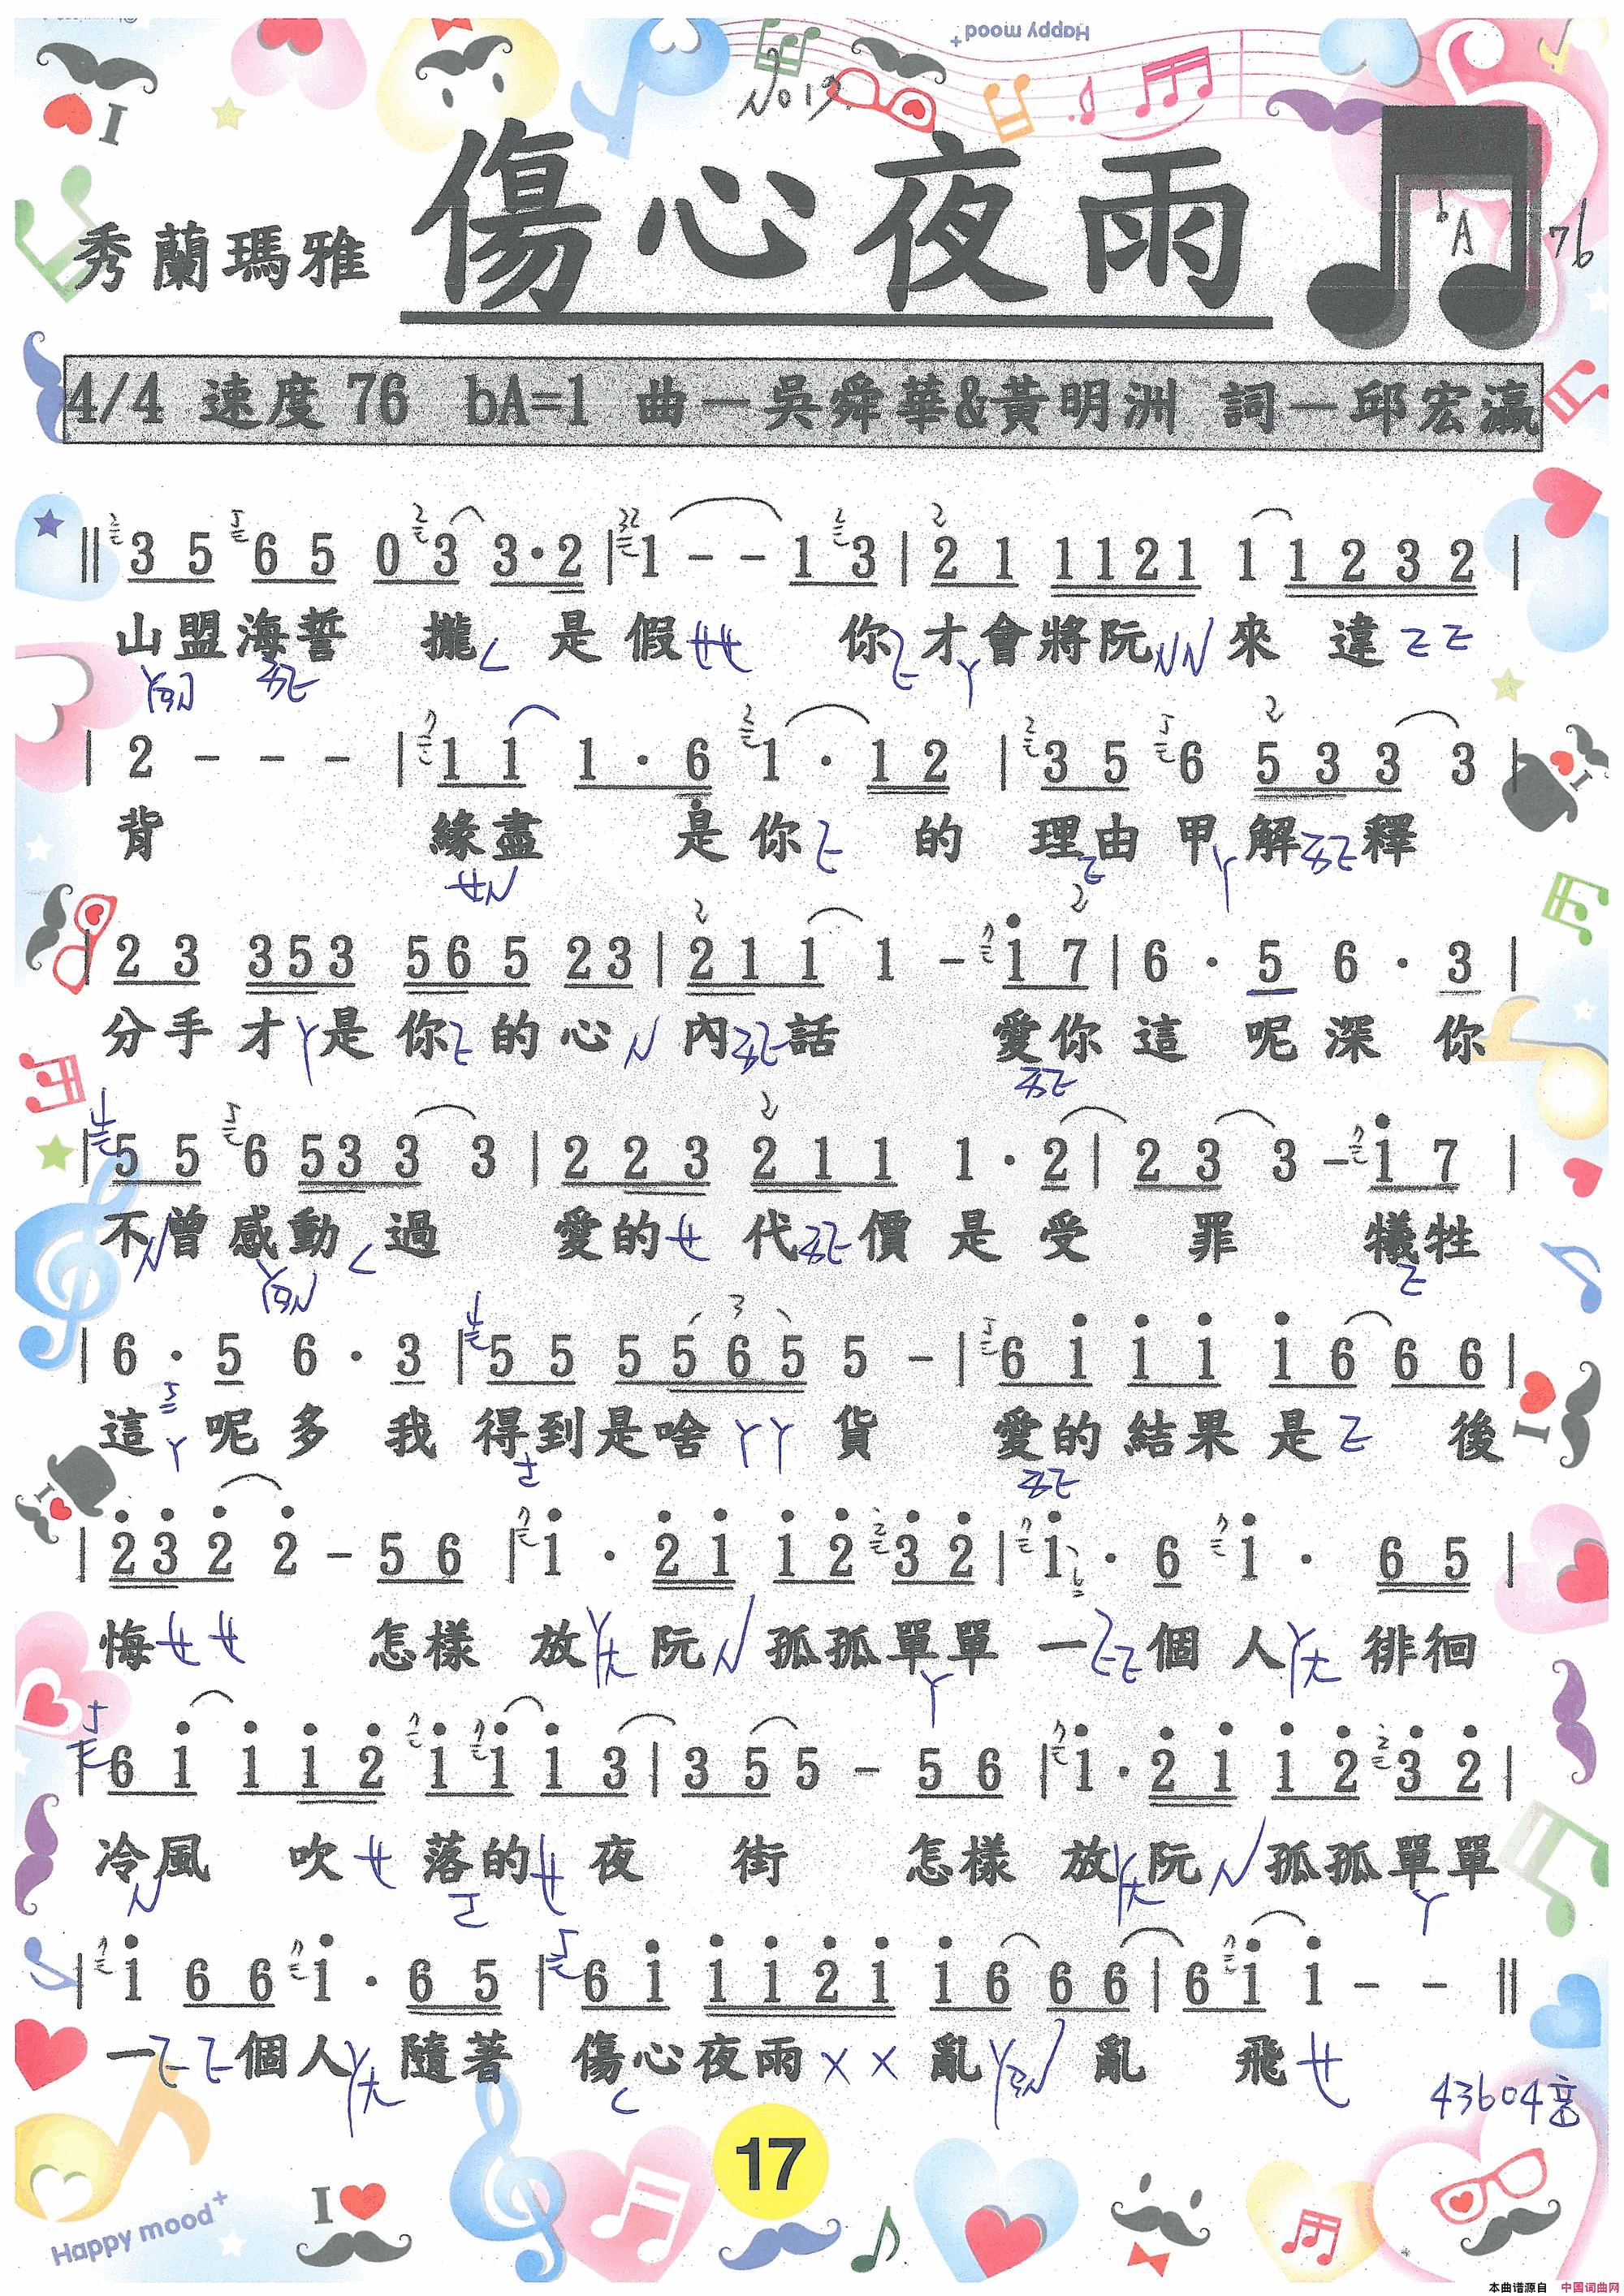 Happy mood+
No 17
傷心夜雨
秀蘭瑪雅
bA 76
4/4 速度 76 bA=1 曲－吳舜華&黃明洲 詞－邱宏瀛
‖ 3 5 6 5 0 3 3·2 | 1 - - 1 3 | 2 1 1121 1 1 2 3 2 |
山盟海誓 攏 是假 你才會將阮 來 違
| 2 - - - | 1 1 1 · 6̣ 1 · 1 2 | 3 5 6 5 3 3 3 |
背 緣盡 是你 的 理由甲解釋
| 2 3 353 56 5 23 | 2 1 1 1 - i 7 | 6 · 5 6 · 3 |
分手才是你的心 內話 愛你這 呢深 你
| 5 5 6 53 3 3 | 2 2 3 2 1 1 1 · 2 | 2 3 3 - i 7 |
不曾感動過 愛的代價是受 罪 犧牲
| 6 · 5 6 · 3 | 5 5 5 5 6 5 5 - | 6 i i i i 6 6 6 |
這呢多 我 得到是啥 貨 愛的結果是 後
| 2̇ 3̇ 2̇ 2̇ - 5 6 | i · 2̇ i i 2̇ 3̇ 2̇ | i · 6 i · 6 5 |
悔 怎樣 放阮孤孤單單 一個人徘徊
| 6 i i i 2̇ i i i 3 | 3 5 5 - 5 6 | i · 2̇ i i 2̇ 3̇ 2̇ |
冷風 吹落的夜 街 怎樣 放阮孤孤單單
| i 6 6 i · 6 5 | 6 i i i 2̇ i i 6 6 6 | 6 i i - - ‖
一個人隨著 傷心夜雨 亂 亂 飛
43604音
17
Happy mood+
I
本曲谱源自 中国词曲网